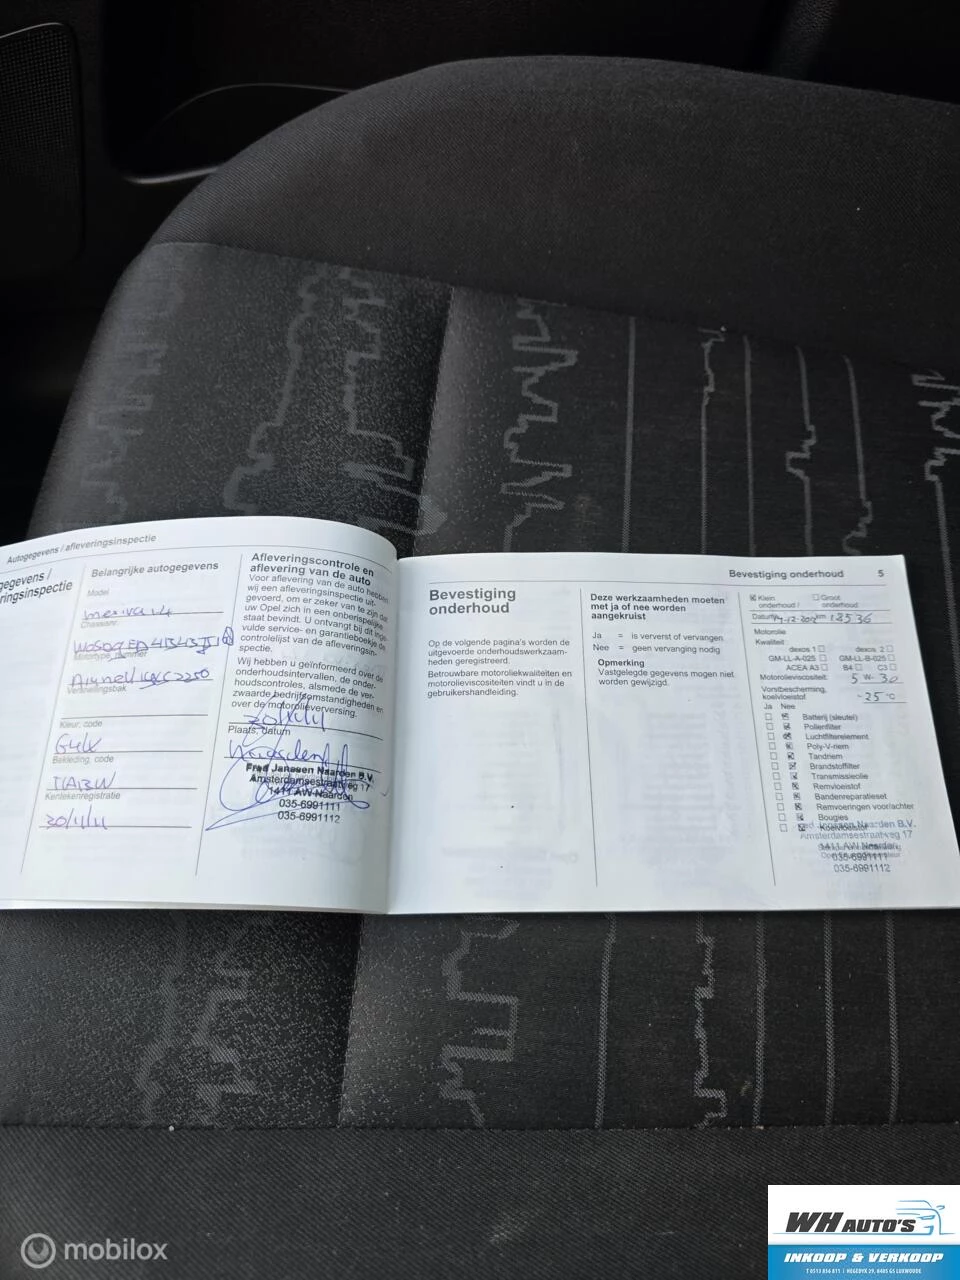 Autogegevens / afleveringsinspectie
gegevens /
ringsinspectie
Belangrijke autogegevens
Model
meriva 1.4
Chassisnr.
Motortype, nummer
Versnellingsbak
Kleur, code
G4X
Bekleding, code
TABW
Kentekenregistratie
30/11/11
Afleveringscontrole en
aflevering van de auto
Voor aflevering van de auto hebben
wij een afleveringsinspectie uit-
gevoerd, om er zeker van te zijn dat
uw Opel zich in een onberispelijke
staat bevindt. U ontvangt bij dit inge-
vulde service- en garantieboekje de
controlelijst van de afleveringsin-
spectie.
Wij hebben u geïnformeerd over de
onderhoudsintervallen, de onder-
houdscontroles, alsmede de ver-
zwaarde bedrijfsomstandigheden en
over de motorolieverversing.
30/11/11
Plaats, datum
Naarden
Fred Janssen Naarden B.V.
Amsterdamsestraatweg 17
1411 AW Naarden
035-6991111
035-6991112
Bevestiging onderhoud 5
Bevestiging
onderhoud
Op de volgende pagina's worden de
uitgevoerde onderhoudswerkzaam-
heden geregistreerd.
Betrouwbare motoroliekwaliteiten en
motorolieviscositeiten vindt u in de
gebruikershandleiding.
Deze werkzaamheden moeten
met ja of nee worden
aangekruist
Ja = is ververst of vervangen
Nee = geen vervanging nodig
Opmerking
Vastgelegde gegevens mogen niet
worden gewijzigd.
Klein onderhoud / Groot onderhoud
Datum 14-12-2012 km 18536
Motorolie
Kwaliteit
dexos 1 dexos 2
GM-LL-A-025 GM-LL-B-025
ACEA A3 B4 C3
Motorolieviscositeit: 5 W- 30
Vorstbescherming,
koelvloeistof -25 °C
Ja Nee
Batterij (sleutel)
Pollenfilter
Luchtfilterelement
Poly-V-riem
Tandriem
Brandstoffilter
Transmissieolie
Remvloeistof
Bandenreparatieset
Remvoeringen voor/achter
Bougies
Koelvloeistof
Fred Janssen Naarden B.V.
Amsterdamsestraatweg 17
1411 AW Naarden
035-6991111
035-6991112
mobilox
WH AUTO'S
INKOOP & VERKOOP
T 0513 856 811 | HEGEDYK 29, 8405 GS LUXWOUDE